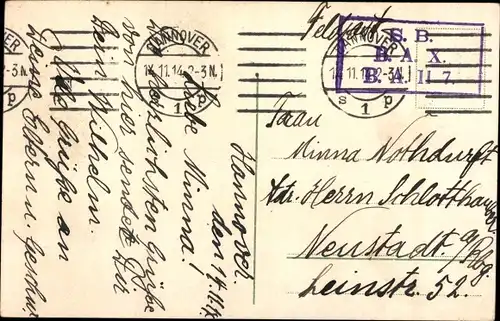 Feldpost
S. B.
B. A. X.
B. A. II 7.
HANNOVER
14.11.14. 2-3 N.
s 1 p
HANNOVER
14.11.14. 2-3 N.
1 p
-3 N.
p
Hannover.
den 14.11.14
Liebe Minna!
Die herzlichsten Grüße
von hier sendet Dir
Dein Wilhelm.
Viele Grüße an
Deine Eltern u. Geschw.
Frau
Minna Nothdurft
Adr. Herrn Schlotthauer
Neustadt a/Rbg.
Leinstr. 52.